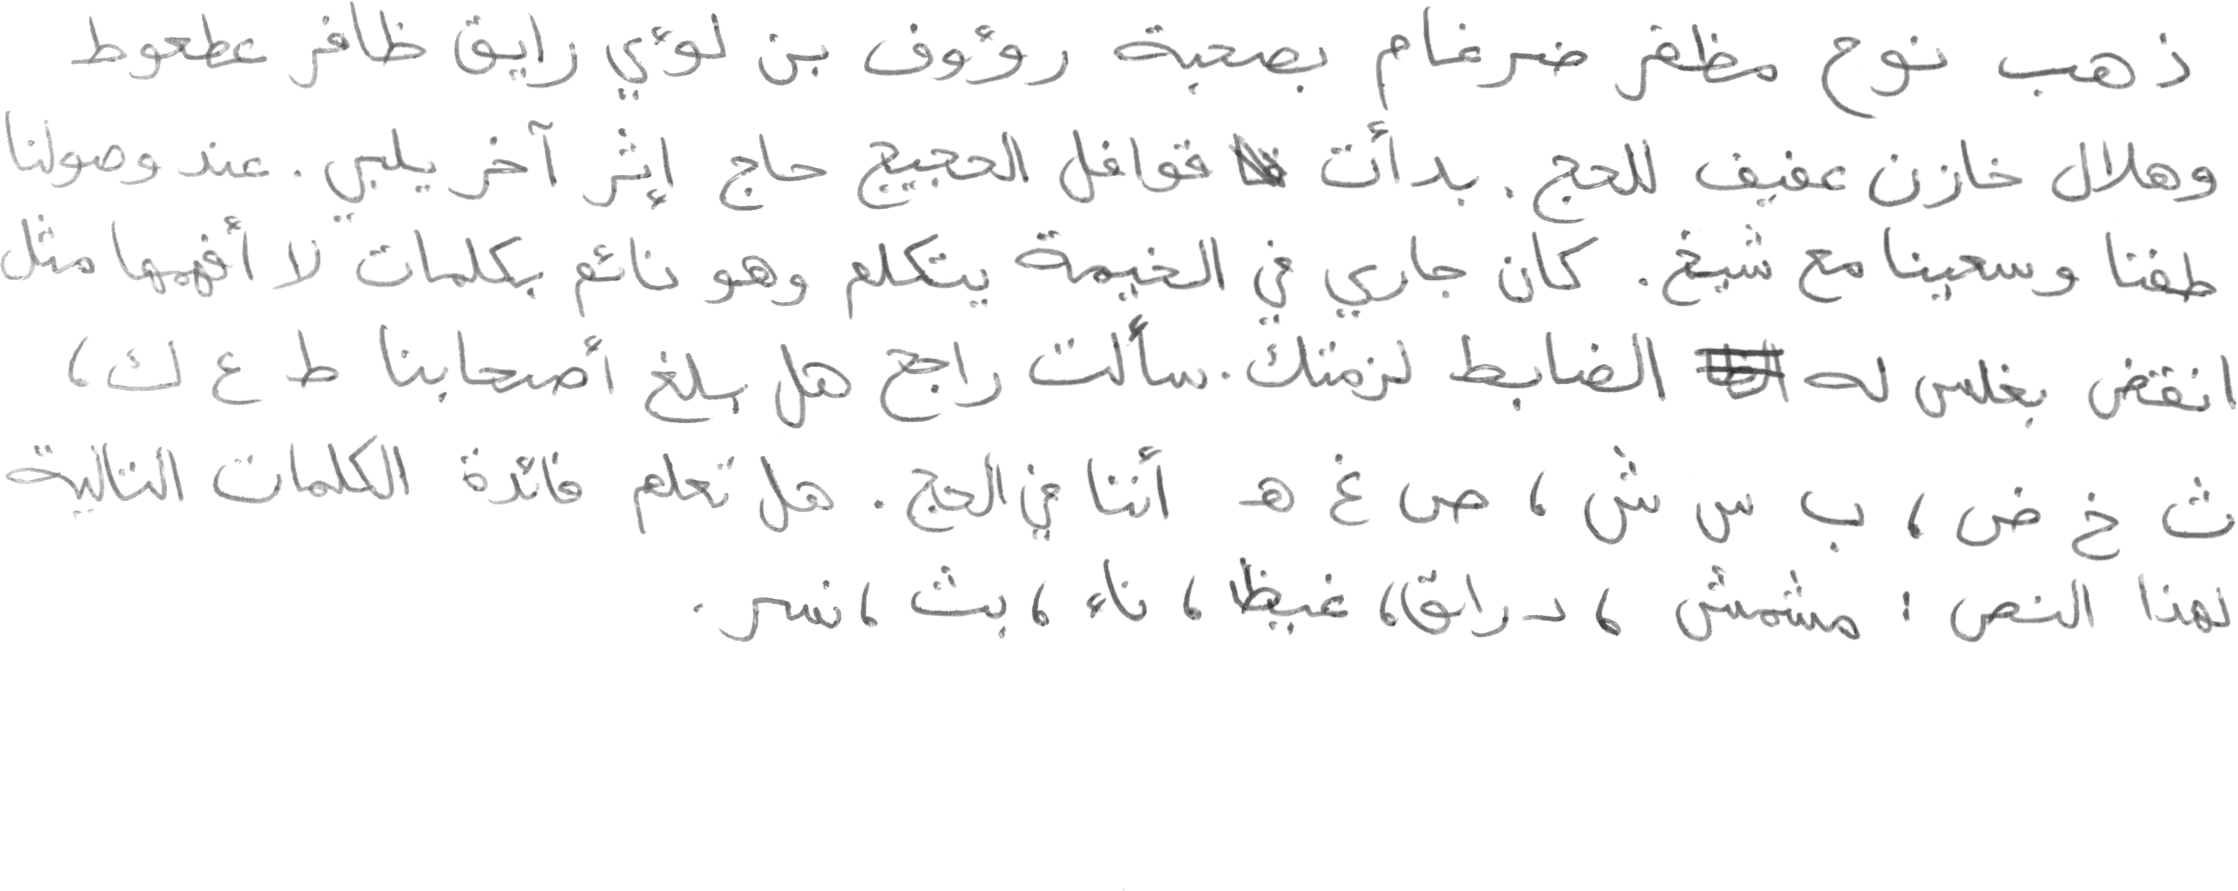 ذهب نوح مظفر ضرغام بصحبة رؤوف بن لؤي رايق ظافر عطعوط
وهلال خازن عفيف للحج. بدأت قوافل الحجيج حاج إثر آخر يلبي. عند وصولنا
طفنا وسعينا مع شيخ. كان جاري في الخيمة يتكلم وهو نائم بكلمات لا أفهمها مثل
انقض بغلس له الضابط لزمتك. سألت راجح هل يبلغ أصحابنا ط ع ك،
ث خ ض، ب س ش، ص غ هـ أننا في الحج. هل تعلم فائدة الكلمات التالية
لهذا النص: مشمش، دراق، غيظ، ناء، بث، نسر.